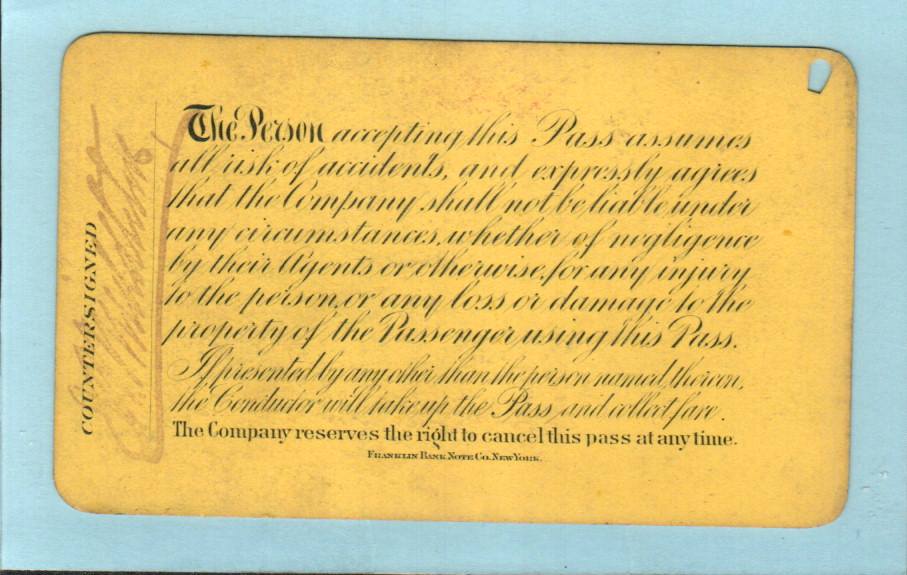 The Person accepting this Pass assumes
all risk of accidents, and expressly agrees
that the Company shall not be liable under
any circumstances, whether of negligence
by their Agents or otherwise, for any injury
to the person, or any loss or damage to the
property of the Passenger using this Pass.
If presented by any other than the person named thereon,
the Conductor will take up the Pass and collect fare.
The Company reserves the right to cancel this pass at any time.
FRANKLIN BANK NOTE CO. NEW YORK.
COUNTERSIGNED